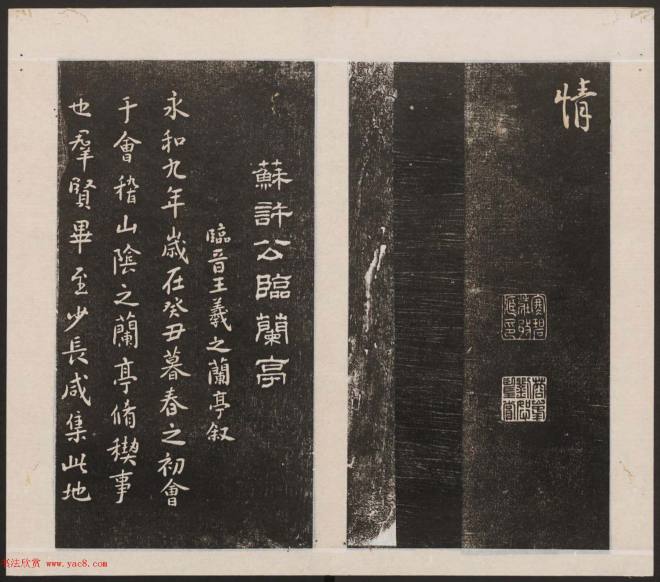 情
蘇許公臨蘭亭
臨晉王羲之蘭亭叙
永和九年歲在癸丑暮春之初會
于會稽山陰之蘭亭脩稧事
也羣賢畢至少長咸集此地
书法欣赏 www.yac8.com